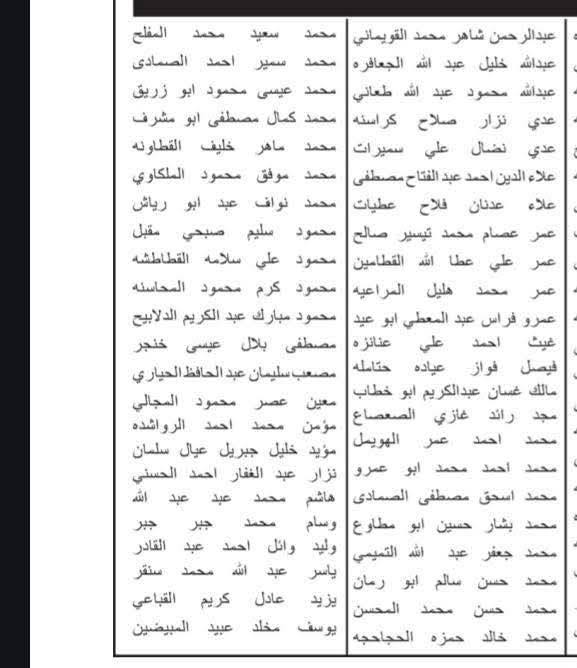 عبدالرحمن شاهر محمد القويماني
عبدالله خليل عبد الله الجعافره
عبدالله محمود عبد الله طعاني
عدي نزار صلاح كراسنه
عدي نضال علي سميرات
علاء الدين احمد عبد الفتاح مصطفى
علاء عدنان فلاح عطيات
عمر عصام محمد تيسير صالح
عمر علي عطا الله القطامين
عمر محمد هليل المراعيه
عمرو فراس عبد المعطي ابو عيد
غيث احمد علي عنانزه
فيصل فواز عياده حتامله
مالك غسان عبدالكريم ابو خطاب
مجد رائد غازي الصعصاع
محمد احمد عمر الهويمل
محمد احمد محمد ابو عمرو
محمد اسحق مصطفى الصمادى
محمد بشار حسين ابو مطاوع
محمد جعفر عبد الله التميمي
محمد حسن سالم ابو رمان
محمد حسن محمد المحسن
محمد خالد حمزه الحجاحجه
محمد سعيد محمد المفلح
محمد سمير احمد الصمادى
محمد عيسى محمود ابو زريق
محمد كمال مصطفى ابو مشرف
محمد ماهر خليف القطاونه
محمد موفق محمود الملكاوي
محمد نواف عبد ابو رياش
محمود سليم صبحي مقبل
محمود علي سلامه القطاطشه
محمود كرم محمود المحاسنه
محمود مبارك عبد الكريم الدلابيح
مصطفى بلال عيسى خنجر
مصعب سليمان عبد الحافظ الحياري
معين عصر محمود المجالي
مؤمن محمد احمد الرواشده
مؤيد خليل جبريل عيال سلمان
نزار عبد الغفار احمد الحسني
هاشم محمد عبد عبد الله
وسام محمد جبر جبر
وليد وائل احمد عبد القادر
ياسر عبد الله محمد سنقر
يزيد عادل كريم القباعي
يوسف مخلد عبيد المبيضين